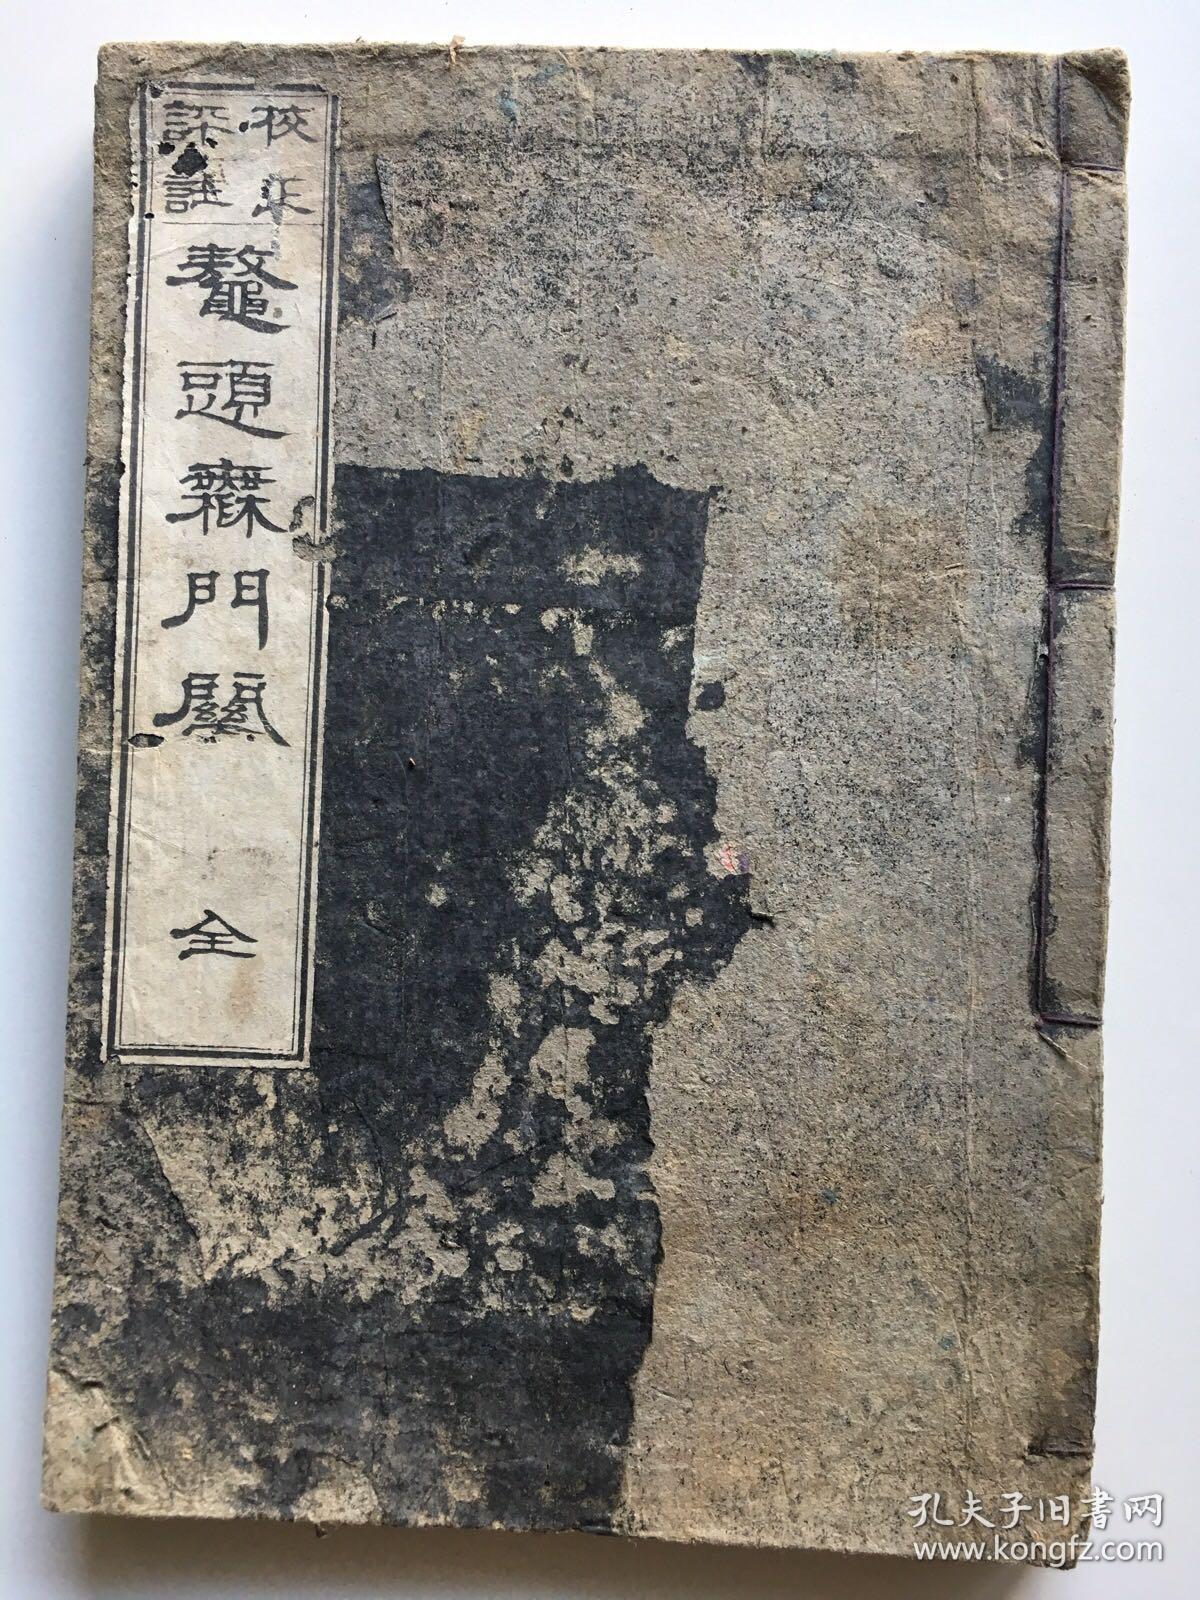 校正
評註
鼇頭無門關
全
孔夫子旧書网
www.kongfz.com